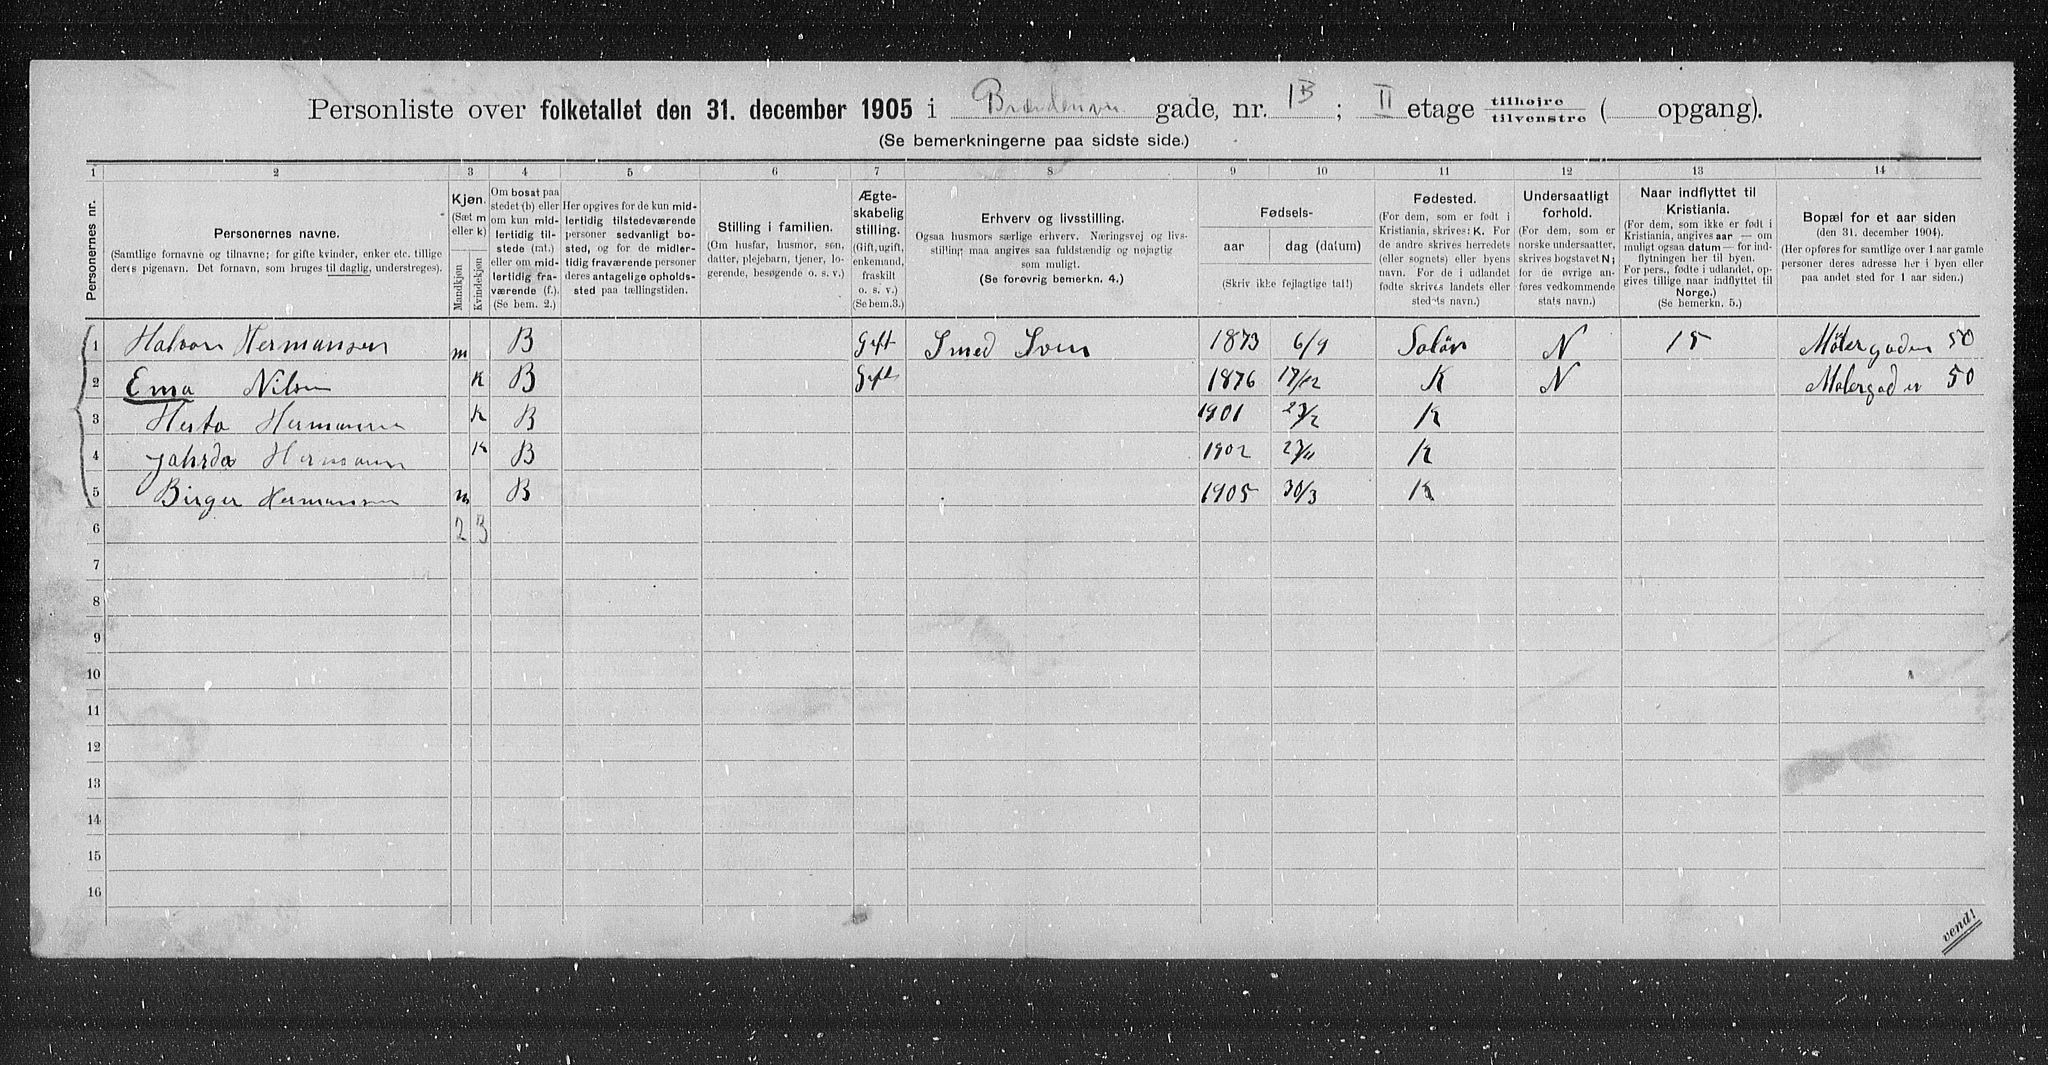 Personliste over folketallet den 31. december 1905 i gade, nr. 1B ; II etage tilhøjre tilvenstre ( opgang).
(Se bemerkningerne paa sidste side.)
1 2 3 4 5 6 7 8 9 10 11 12 13 14
Personernes nr.
Personernes navne.
(Samtlige fornavne og tilnavne; for gifte kvinder, enker etc. tillige
deres pigenavn. Det fornavn, som bruges til daglig, understreges).
Kjøn.
(Sæt m
eller k)
Mandkjøn
Kvindekjøn
Om bosat paa
stedet (b) eller
om kun mid-
lertidig til-
stede (mt.)
eller om mid-
lertidig fra-
værende (f.).
(Se bem. 2.)
Her opgives for de kun mid-
lertidig tilstedeværende
personer sedvanligt bo-
sted, og for de midler-
tidig fraværende personer
deres antagelige opholds-
sted paa tællingstiden.
Stilling i familien.
(Om husfar, husmor, søn,
datter, plejebarn, tjener, lo-
gerende, besøgende o. s. v.)
Ægte-
skabelig
stilling.
(Gift, ugift,
enkemand,
fraskilt
o. s. v.)
(Se bem.3.)
Erhverv og livsstilling.
Ogsaa husmors særlige erhverv. Næringsvej og livs-
stilling maa angives saa fuldstændig og nøjagtig
som muligt.
(Se forøvrig bemerkn. 4.)
Fødsels-
aar dag (datum)
(Skriv ikke fejlagtige tal!)
Fødested.
(For dem, som er født i
Kristiania, skrives: K. For
de andre skrives herredets
(eller sognets) eller byens
navn. For de i udlandet
fødte skrives landets eller
stedets navn.)
Undersaatligt
forhold.
(For dem, som er
norske undersaatter,
skrives bogstavet N;
for de øvrige an-
føres vedkommende
stats navn.)
Naar indflyttet til
Kristiania.
(For dem, som ikke er født i
Kristiania, angives aar — om
muligt ogsaa datum — for ind-
flytningen her til byen.
For pers., fødte i udlandet, op-
gives tillige naar indflyttet til
Norge.)
(Se bemerkn. 5.)
Bopæl for et aar siden
(den 31. december 1904).
(Her opføres for samtlige over 1 aar gamle
personer deres adresse her i byen eller
paa andet sted for 1 aar siden.)
1 Halvor Hermansen m B Gift Smed 1873 6/9 Soløer N 15 Mølergaden 50
2 Ema Nilsen K B Gift 1876 17/12 K N Molergaden 50
3 Herta Hermansen K B 1901 K
4 Hermansen K B 1902 K
5 Birger Hermansen m B 1905 30/3 K
6 2 3
7
8
9
10
11
12
13
14
15
16
vend!